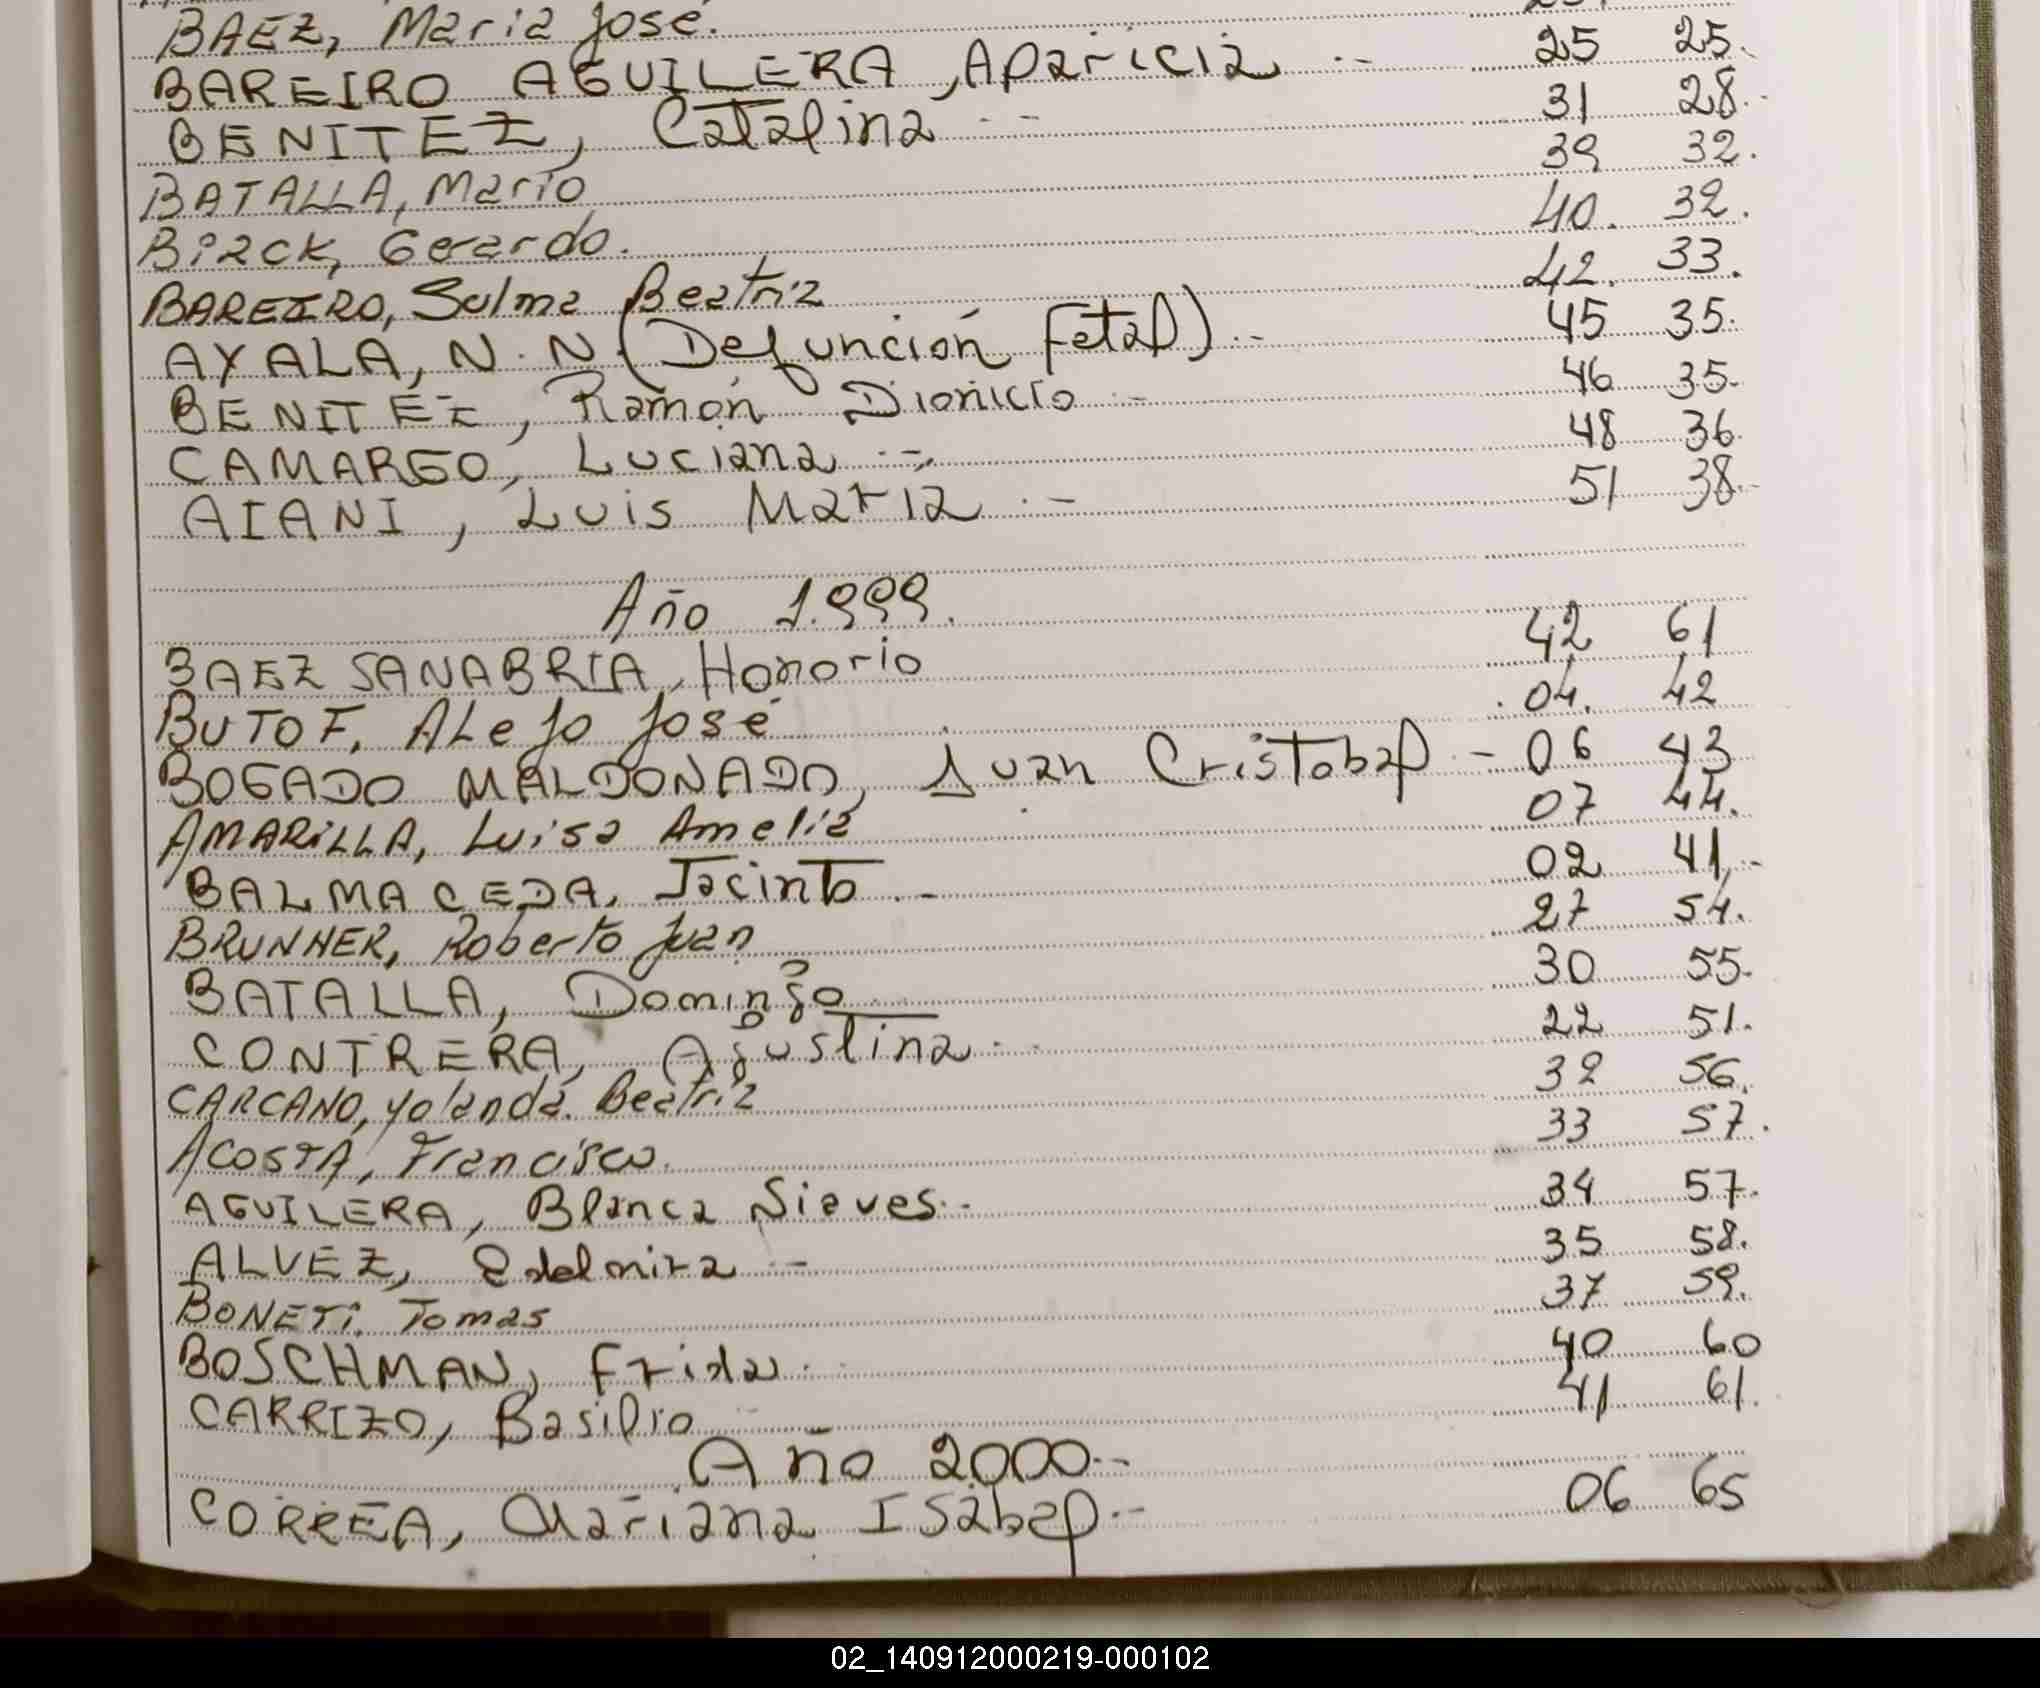 BAEZ, Maria José.
BAREIRO AGUILERA, Aparicia .- 25 25.
BENITEZ, Catalina .- 31 28.-
BATALLA, Mario 39 32.
Biack, Gerardo. 40. 32.
BAREIRO, Sulma Beatriz 42. 33.
AYALA, N.N. (Defunción Fetal) .- 45 35.
BENITEZ, Ramón Dionicio .- 46 35.
CAMARGO, Luciana .- 48 36.
AIANI, Luis Maria .- 51 38.-
Año 1.999.
BAEZ SANABRIA, Honorio 42 61
BUTOF, ALejo José 04. 42
BOGADO MALDONADO, Juan Cristobal - 06 43
AMARILLA, Luisa Amelia 07 44.
BALMACEDA, Jacinto .- 02 41.-
BRUNNER, Roberto Juan 27 54.
BATALLA, Domingo 30 55.
CONTRERA, Agustina .- 22 51.
CARCANO, Yolanda. Beatriz 32 56.
ACOSTA, Francisco. 33 57.
AGUILERA, Blanca Nieves.- 34 57.
ALVEZ, Edelmira - 35 58.
BONETi. Tomas 37 59.
BOSCHMAN, Frida.- 40 60
CARRIZO, Basilio 41 61.
Año 2000.-
CORREA, Mariana Isabel.- 06 65
02_140912000219-000102